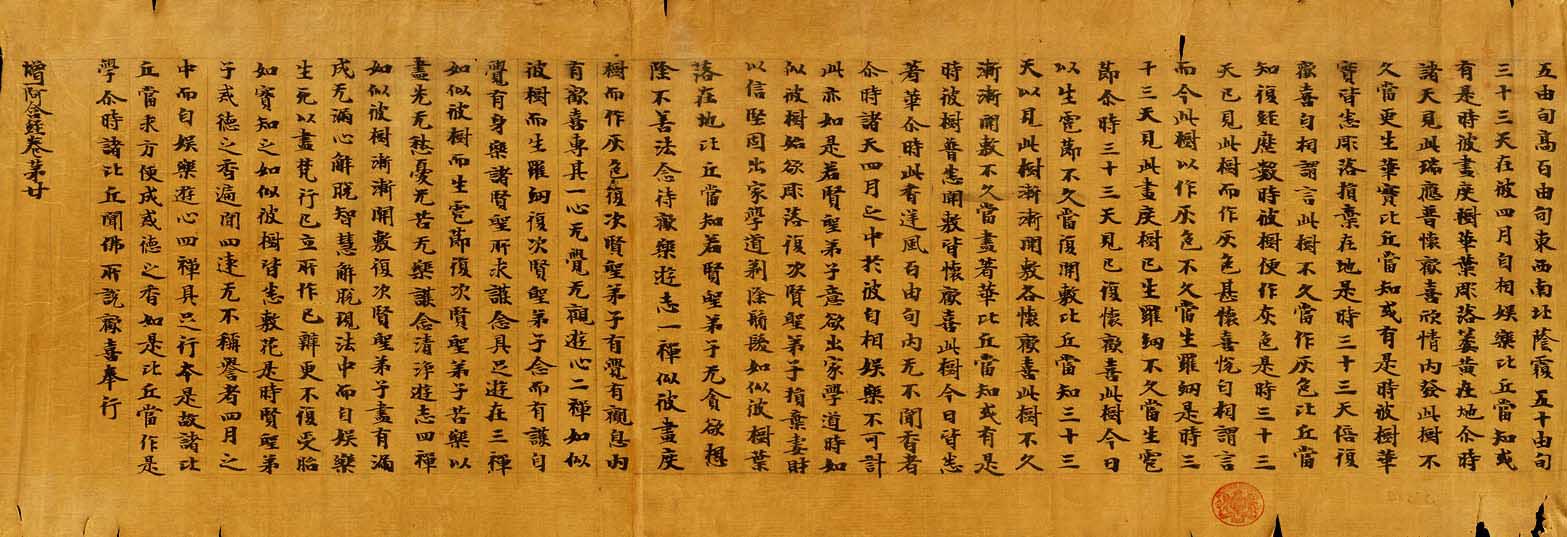 五由旬高百由旬東西南北蔭覆五十由旬
三十三天在彼四月自相娛樂比丘當知或
有是時彼晝度樹華葉彫落萎黃在地尒時
諸天見此瑞應普懷歡喜欣情内發此樹不
久當更生華實比丘當知或有是時彼樹華
實皆悉彫落捐棄在地是時三十三天倍復
歡喜自相謂言此樹不久當作灰色比丘當
知復經歷數時彼樹便作灰色是時三十三
天已見此樹而作灰色甚懷喜悅自相謂言
而今此樹以作灰色不久當生羅網是時三
十三天見此晝度樹已生羅網不久當生雹
節尒時三十三天見已復懷歡喜此樹今日
以生雹節不久當復開敷比丘當知三十三
天以見此樹漸漸開敷各懷歡喜此樹不久
漸漸開敷不久當盡著華比丘當知或有是
時彼樹普悉開敷皆懷歡喜此樹今日皆悉
著華尒時此香逆風百由旬内无不聞香者
尒時諸天四月之中於彼自相娛樂不可計
此亦如是若賢聖弟子意欲出家學道時如
似彼樹始欲彫落復次賢聖弟子捐棄妻財
以信堅固出家學道剃除鬚髮如似彼樹葉
落在地比丘當知若賢聖弟子无貪欲想
除不善法念待歡樂遊志一禪似彼晝度
樹而作灰色復次賢聖弟子有覺有觀息内
有歡喜專其一心无覺无觀遊心二禪如似
彼樹而生羅網復次賢聖弟子念而有護自
覺有身樂諸賢聖所求護念具足遊在三禪
如似彼樹而生雹節復次賢聖弟子苦樂以
盡先无愁憂无苦无樂護念清淨遊志四禪
如似彼樹漸漸開敷復次賢聖弟子盡有漏
成无漏心解脫智慧解脫現法中而自娛樂
生死以盡梵行已立所作已辦更不復受胎
如實知之如似彼樹皆悉敷花是時賢聖弟
子戒德之香遍聞四遠无不稱譽者四月之
中而自娛樂遊心四禪具足行本是故諸比
丘當求方便成戒德之香如是比丘當作是
學尒時諸比丘聞佛所說歡喜奉行
增一阿含經卷第廿